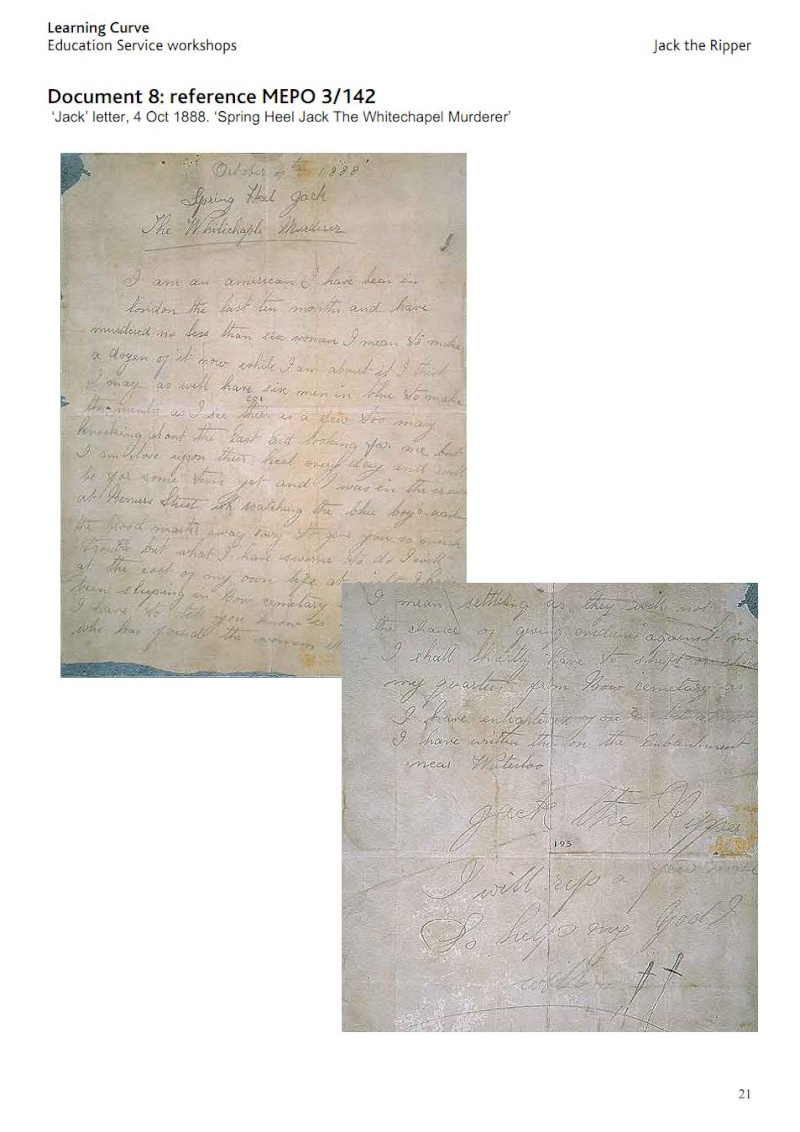 Learning Curve
Education Service workshops
Jack the Ripper
Document 8: reference MEPO 3/142
'Jack' letter, 4 Oct 1888. 'Spring Heel Jack The Whitechapel Murderer'
October 4th 1888
Spring Heel Jack
The Whitechaple Murderer
I am an american I have been in
london the last ten months and have
murdered no less than six women I mean to make
a dozen of it now while I am about it I think
I may as well have six men in blue to make
the as I see there is a few too may
knocking about the East End looking for me but
I am close upon their heel every day and
be for some time yet and I was in the crowd
at Berners Street watching the blue boys
the blood marks away sory to give you so much
trouble but what I have sworn to do I will
at the cost of my own life at I have
been sleeping in Bow cemetary
I have to tell you know is
who has found the women
I mean settling as they will not
the chance of giving evidence against
I shall shortly have to shift
my quarters from Bow cemetary as
I have enlightened you a bit about
I have written this on the Embankment
near Waterloo
Jack the Ripper
195
I will rip a few more
So help my God I
will
21